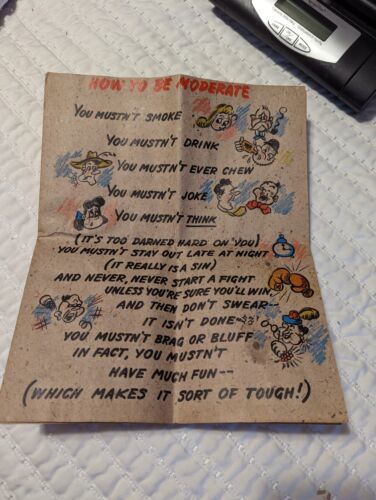 HOW TO BE MODERATE
YOU MUSTN'T SMOKE
YOU MUSTN'T DRINK
YOU MUSTN'T EVER CHEW
YOU MUSTN'T JOKE
YOU MUSTN'T THINK
(IT'S TOO DARNED HARD ON YOU)
YOU MUSTN'T STAY OUT LATE AT NIGHT
(IT REALLY IS A SIN)
AND NEVER, NEVER START A FIGHT
UNLESS YOU'RE SURE YOU'LL WIN,
AND THEN DON'T SWEAR--
IT ISN'T DONE--
YOU MUSTN'T BRAG OR BLUFF
IN FACT, YOU MUSTN'T
HAVE MUCH FUN--
(WHICH MAKES IT SORT OF TOUGH!)